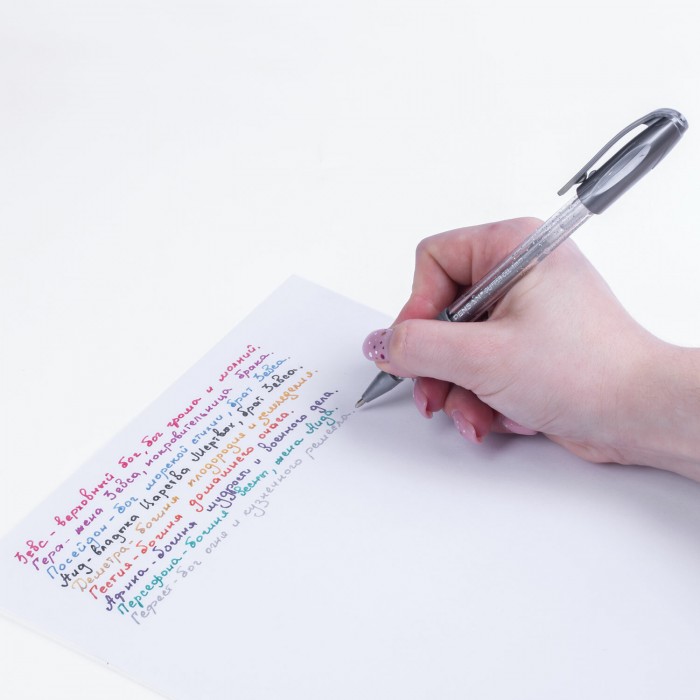 Зевс - верховный бог, бог грома и молний.
Гера - жена Зевса, покровительница брака.
Посейдон - бог морской стихии, брат Зевса.
Аид - владыка Царства Мертвых, брат Зевса.
Деметра - богиня плодородия и земледелия.
Гестия - богиня домашнего очага.
Афина - богиня мудрости и военного дела.
Персефона - богиня весны, жена Аида.
Гефест - бог огня и кузнечного ремесла.